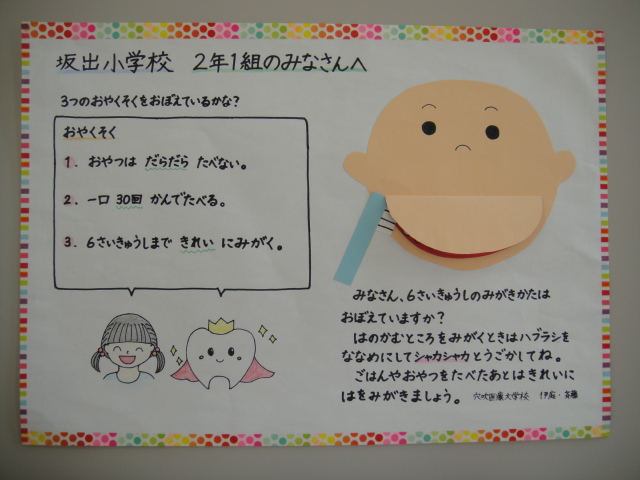 坂出小学校 2年1組のみなさんへ
3つのおやくそくをおぼえているかな?
おやくそく
1. おやつは だらだら たべない。
2. 一口 30回 かんでたべる。
3. 6さいきゅうしまで きれい にみがく。
みなさん、6さいきゅうしのみがきかたは
おぼえていますか?
はのかむところをみがくときはハブラシを
ななめにしてシャカシャカとうごかしてね。
ごはんやおやつをたべたあとはきれいに
はをみがきましょう。 穴吹医療大学校